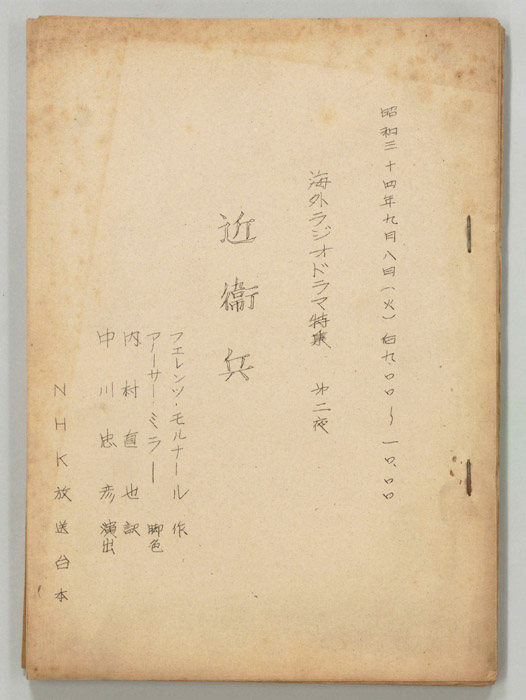 昭和三十四年九月八日(火)后九.〇〇〜一〇.〇〇
海外ラジオドラマ特集 第二夜
近衛兵
フェレンツ・モルナール 作
アーサー・ミラー 脚色
内村直也 訳
中川忠彦 演出
NHK放送台本